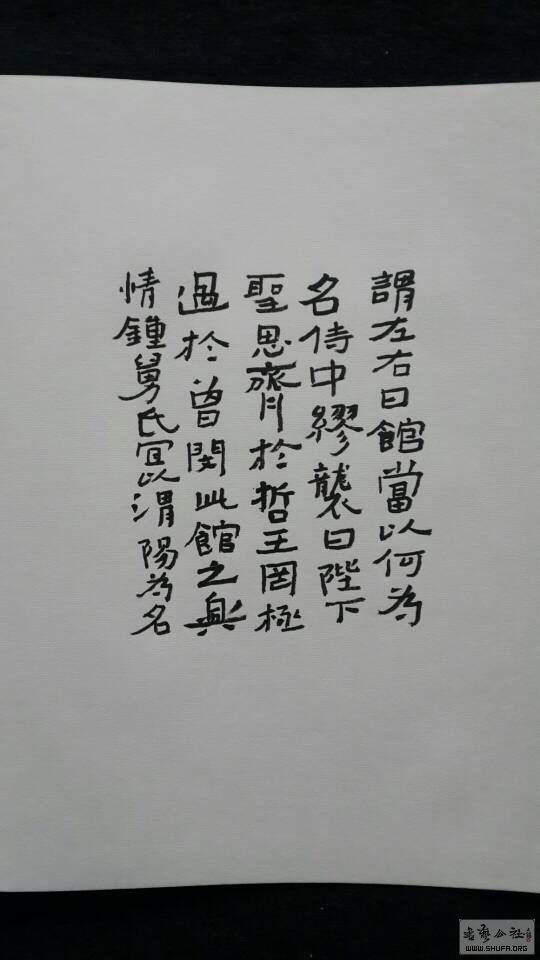 謂左右曰館當以何為
名侍中繆襲曰陛下
聖思齊於哲王罔極
過於曾閔此館之興
情鍾舅氏宜以渭陽為名
WWW.SHUFA.ORG